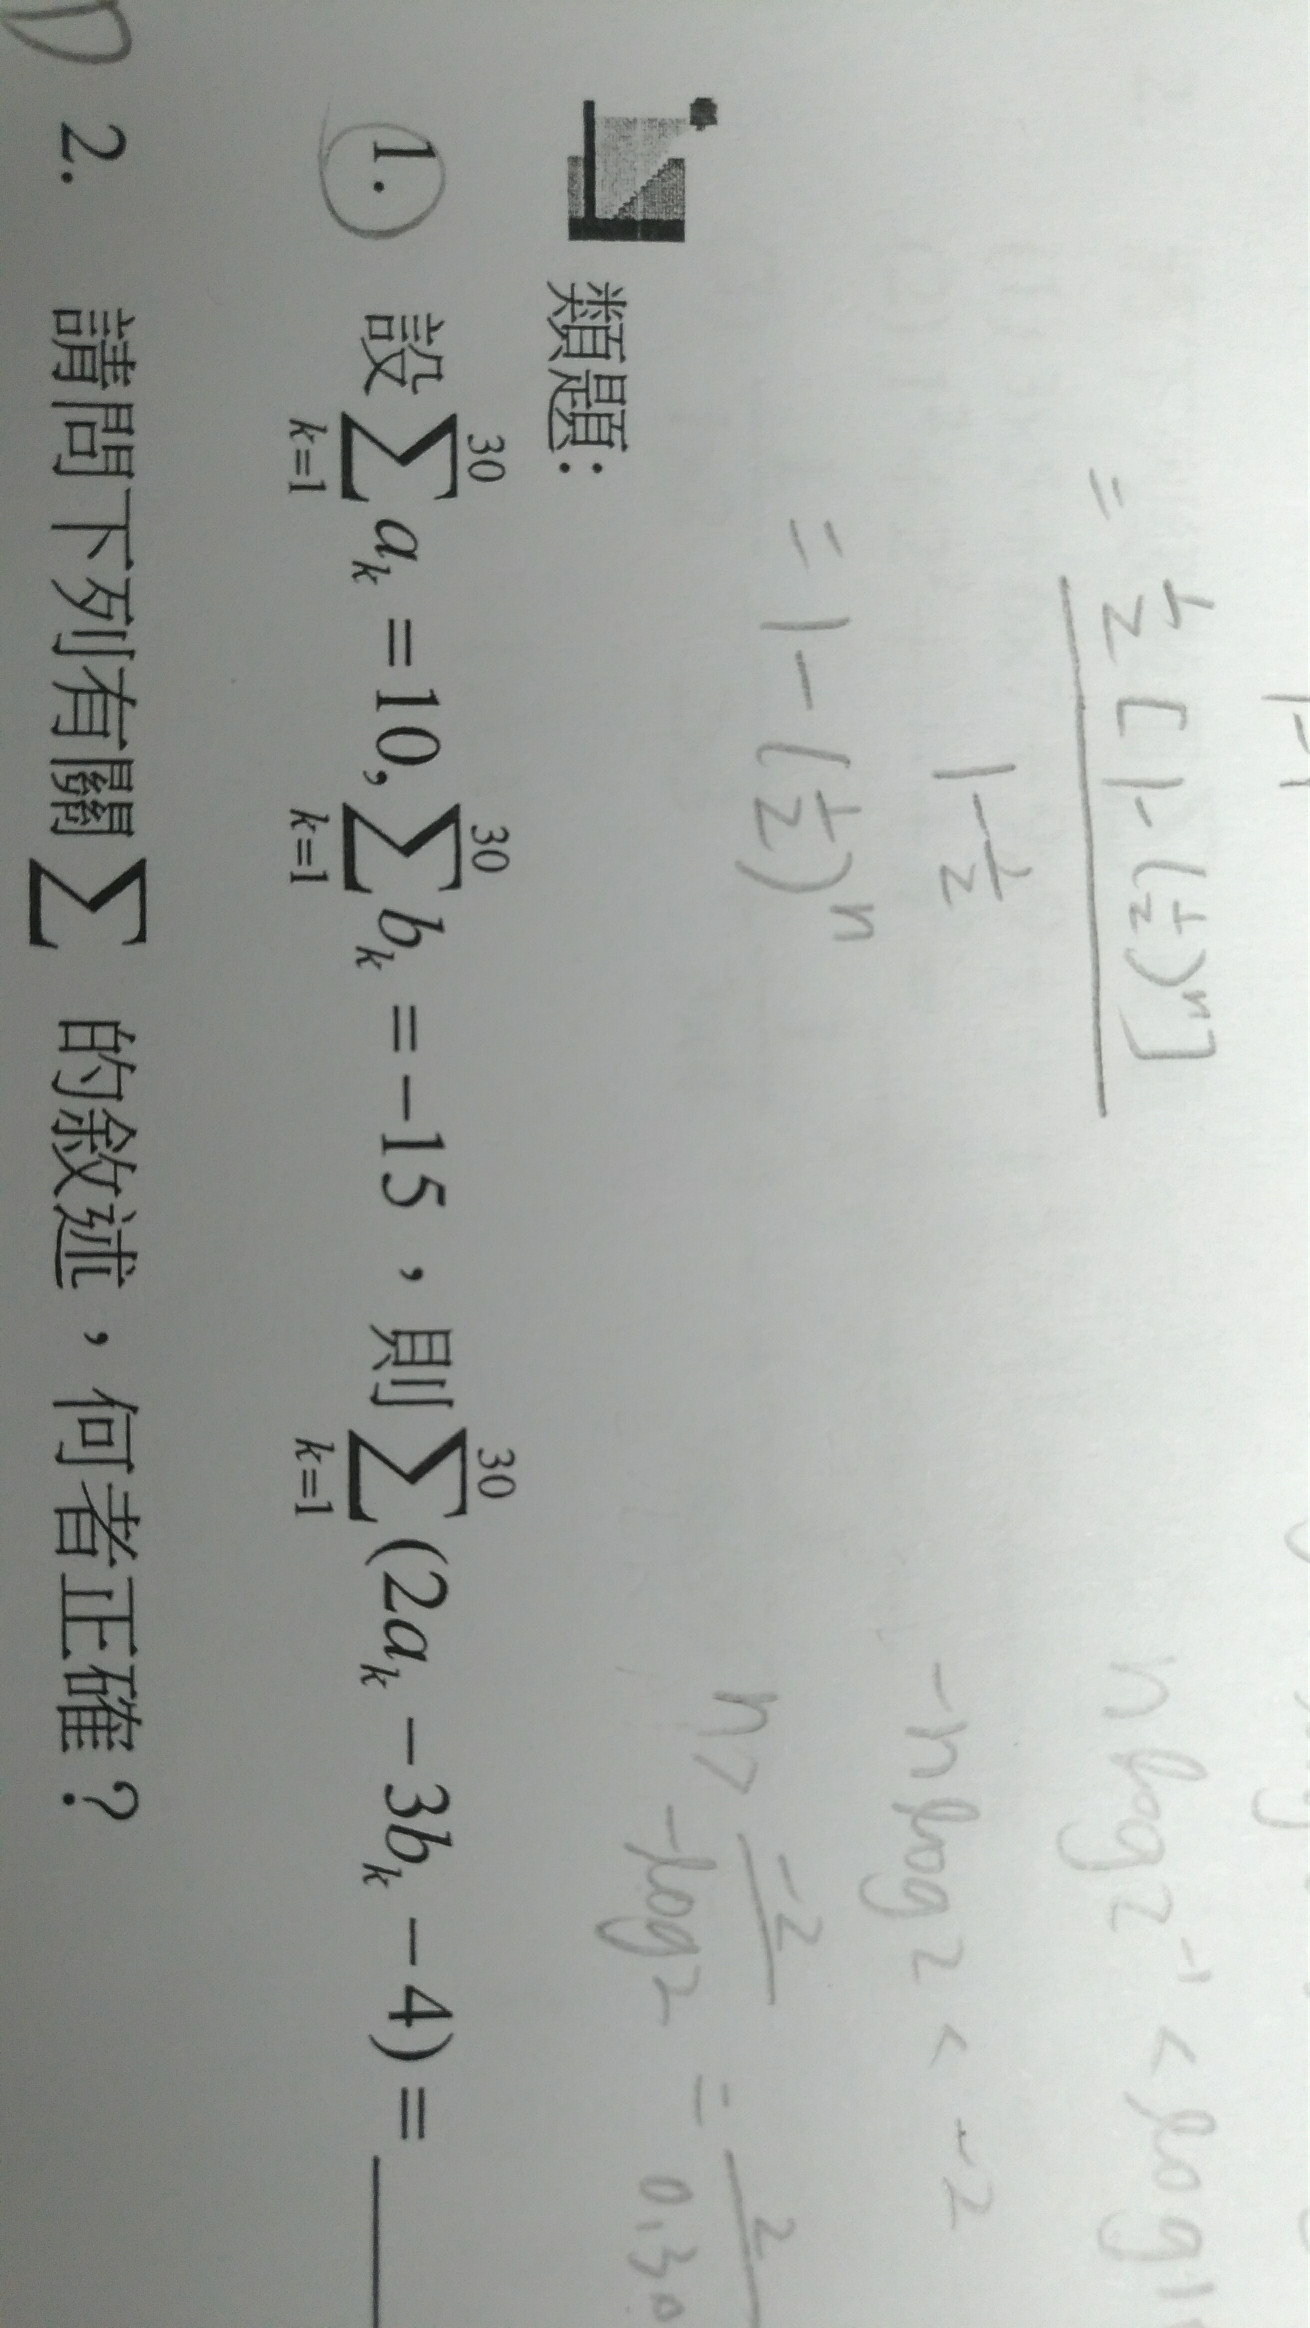 = ½ [1-(½)ⁿ]
1-½
= 1-(½)ⁿ
n log 2⁻¹ < log
-n log 2 < -2
n > -2/-log 2 = 2/0.30
類題:
1. 設 ∑_{k=1}^{30} a_k = 10, ∑_{k=1}^{30} b_k = -15，則 ∑_{k=1}^{30} (2a_k - 3b_k - 4) = ____
D 2. 請問下列有關∑ 的敘述，何者正確？